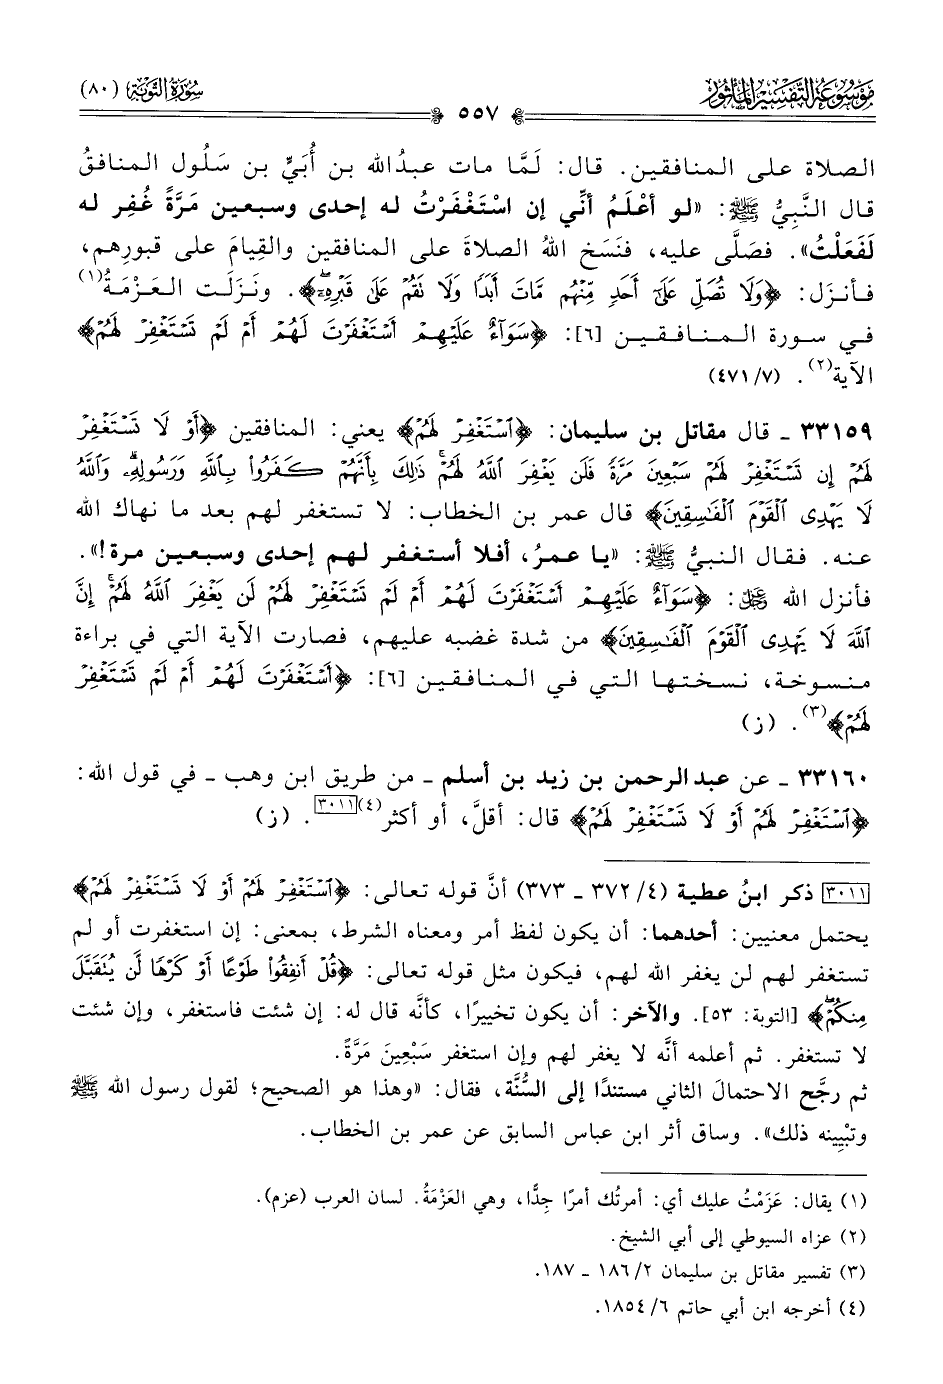 موسوعة التفسير المأثور
سورة التوبة (٨٠)
٥٥٧
الصلاة على المنافقين. قال: لَمَّا مات عبدُالله بن أُبَيٍّ بن سَلُول المنافقُ
قال النَّبِيُّ ﷺ: «لو أعْلَمُ أنِّي إن اسْتَغْفَرْتُ له إحدى وسبعين مَرَّةً غُفِر له
لَفَعَلْتُ». فصَلَّى عليه، فنَسَخ اللهُ الصلاةَ على المنافقين والقِيامَ على قبورِهم،
فأنزل: ﴿وَلَا تُصَلِّ عَلَىٰٓ أَحَدٍ مِّنْهُم مَّاتَ أَبَدًا وَلَا تَقُمْ عَلَىٰ قَبْرِهِۦٓۖ﴾. ونَزَلَت العَزْمَةُ(١)
في سورة المنافقين [٦]: ﴿سَوَآءٌ عَلَيْهِمْ أَسْتَغْفَرْتَ لَهُمْ أَمْ لَمْ تَسْتَغْفِرْ لَهُمْ﴾
الآية(٢). (٤٧١/٧)
٣٣١٥٩ ـ قال مقاتل بن سليمان: ﴿ٱسْتَغْفِرْ لَهُمْ﴾ يعني: المنافقين ﴿أَوْ لَا تَسْتَغْفِرْ
لَهُمْ إِن تَسْتَغْفِرْ لَهُمْ سَبْعِينَ مَرَّةً فَلَن يَغْفِرَ ٱللَّهُ لَهُمْۚ ذَٰلِكَ بِأَنَّهُمْ كَفَرُوا۟ بِٱللَّهِ وَرَسُولِهِۦۗ وَٱللَّهُ
لَا يَهْدِى ٱلْقَوْمَ ٱلْفَـٰسِقِينَ﴾ قال عمر بن الخطاب: لا تستغفر لهم بعد ما نهاك الله
عنه. فقال النبيُّ ﷺ: «يا عمرُ، أفلا أستغفر لهم إحدى وسبعين مرة!».
فأنزل الله ﷻ: ﴿سَوَآءٌ عَلَيْهِمْ أَسْتَغْفَرْتَ لَهُمْ أَمْ لَمْ تَسْتَغْفِرْ لَهُمْ لَن يَغْفِرَ ٱللَّهُ لَهُمْۚ إِنَّ
ٱللَّهَ لَا يَهْدِى ٱلْقَوْمَ ٱلْفَـٰسِقِينَ﴾ من شدة غضبه عليهم، فصارت الآية التي في براءة
منسوخة، نسختها التي في المنافقين [٦]: ﴿أَسْتَغْفَرْتَ لَهُمْ أَمْ لَمْ تَسْتَغْفِرْ
لَهُمْ﴾(٣). (ز)
٣٣١٦٠ ـ عن عبدالرحمن بن زيد بن أسلم ـ من طريق ابن وهب ـ في قول الله:
﴿ٱسْتَغْفِرْ لَهُمْ أَوْ لَا تَسْتَغْفِرْ لَهُمْ﴾ قال: أقلَّ، أو أكثر(٤)[٣٠١١]. (ز)
[٣٠١١] ذكر ابنُ عطية (٤/ ٣٧٢ ـ ٣٧٣) أنَّ قوله تعالى: ﴿ٱسْتَغْفِرْ لَهُمْ أَوْ لَا تَسْتَغْفِرْ لَهُمْ﴾
يحتمل معنيين: أحدهما: أن يكون لفظ أمر ومعناه الشرط، بمعنى: إن استغفرت أو لم
تستغفر لهم لن يغفر الله لهم، فيكون مثل قوله تعالى: ﴿قُلْ أَنفِقُوا۟ طَوْعًا أَوْ كَرْهًا لَّن يُتَقَبَّلَ
مِنكُمْۖ﴾ [التوبة: ٥٣]. والآخر: أن يكون تخييرًا، كأنَّه قال له: إن شئت فاستغفر، وإن شئت
لا تستغفر. ثم أعلمه أنَّه لا يغفر لهم وإن استغفر سَبْعِينَ مَرَّةً.
ثم رجَّح الاحتمالَ الثاني مستندًا إلى السُّنَّة، فقال: «وهذا هو الصحيح؛ لقول رسول الله ﷺ
وتبْيِينه ذلك». وساق أثر ابن عباس السابق عن عمر بن الخطاب.
(١) يقال: عَزَمْتُ عليك أي: أمرتُك أمرًا جِدًّا، وهي العَزْمَةُ. لسان العرب (عزم).
(٢) عزاه السيوطي إلى أبي الشيخ.
(٣) تفسير مقاتل بن سليمان ٢/ ١٨٦ ـ ١٨٧.
(٤) أخرجه ابن أبي حاتم ٦/ ١٨٥٤.